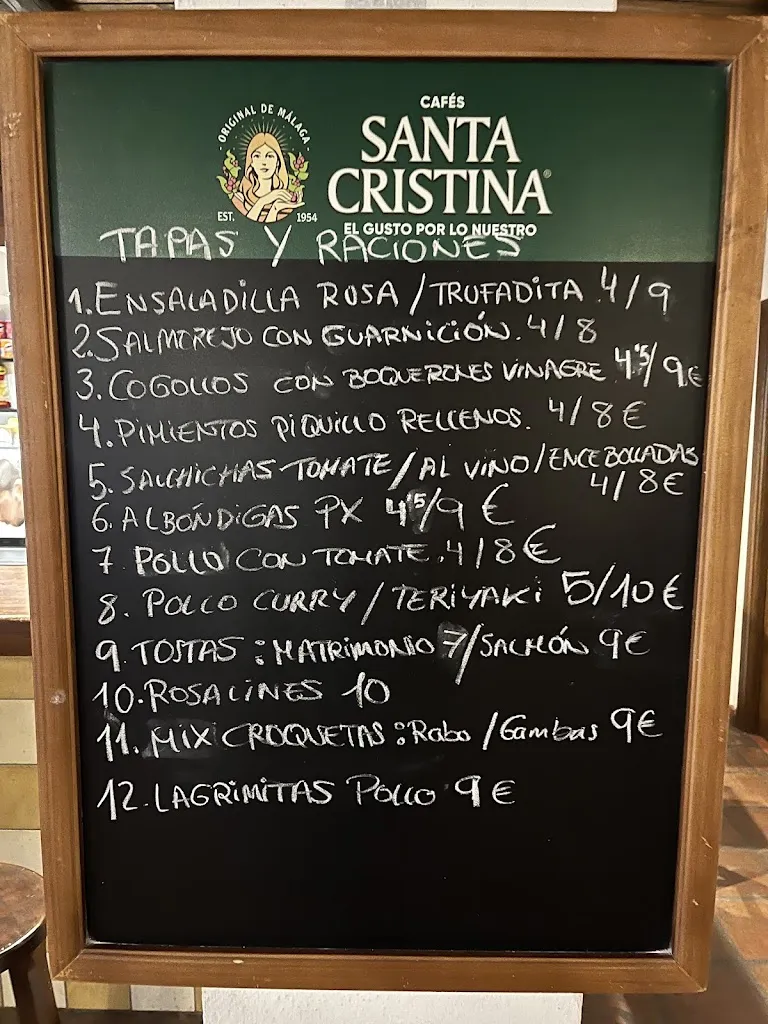 CAFÉS
ORIGINAL DE MÁLAGA
SANTA
CRISTINA®
EST. 1954
EL GUSTO POR LO NUESTRO
TAPAS Y RACIONES
1. ENSALADILLA RUSA / TRUFADITA 4/9
2. SALMOREJO CON GUARNICIÓN. 4/8
3. COGOLLOS CON BOQUERONES VINAGRE 4'5/9€
4. PIMIENTOS PIQUILLO RELLENOS. 4/8€
5. SALCHICHAS TOMATE / AL VINO / ENCEBOLLADAS
4/8€
6. ALBÓNDIGAS PX 4'5/9 €
7 POLLO CON TOMATE. 4/8€
8. POLLO CURRY / TERIYAKI 5/10€
9. TOSTAS : MATRIMONIO 7/SALMÓN 9€
10. ROSALINES 10
11. MIX CROQUETAS : Rabo / Gambas 9€
12. LAGRIMITAS POLLO 9€